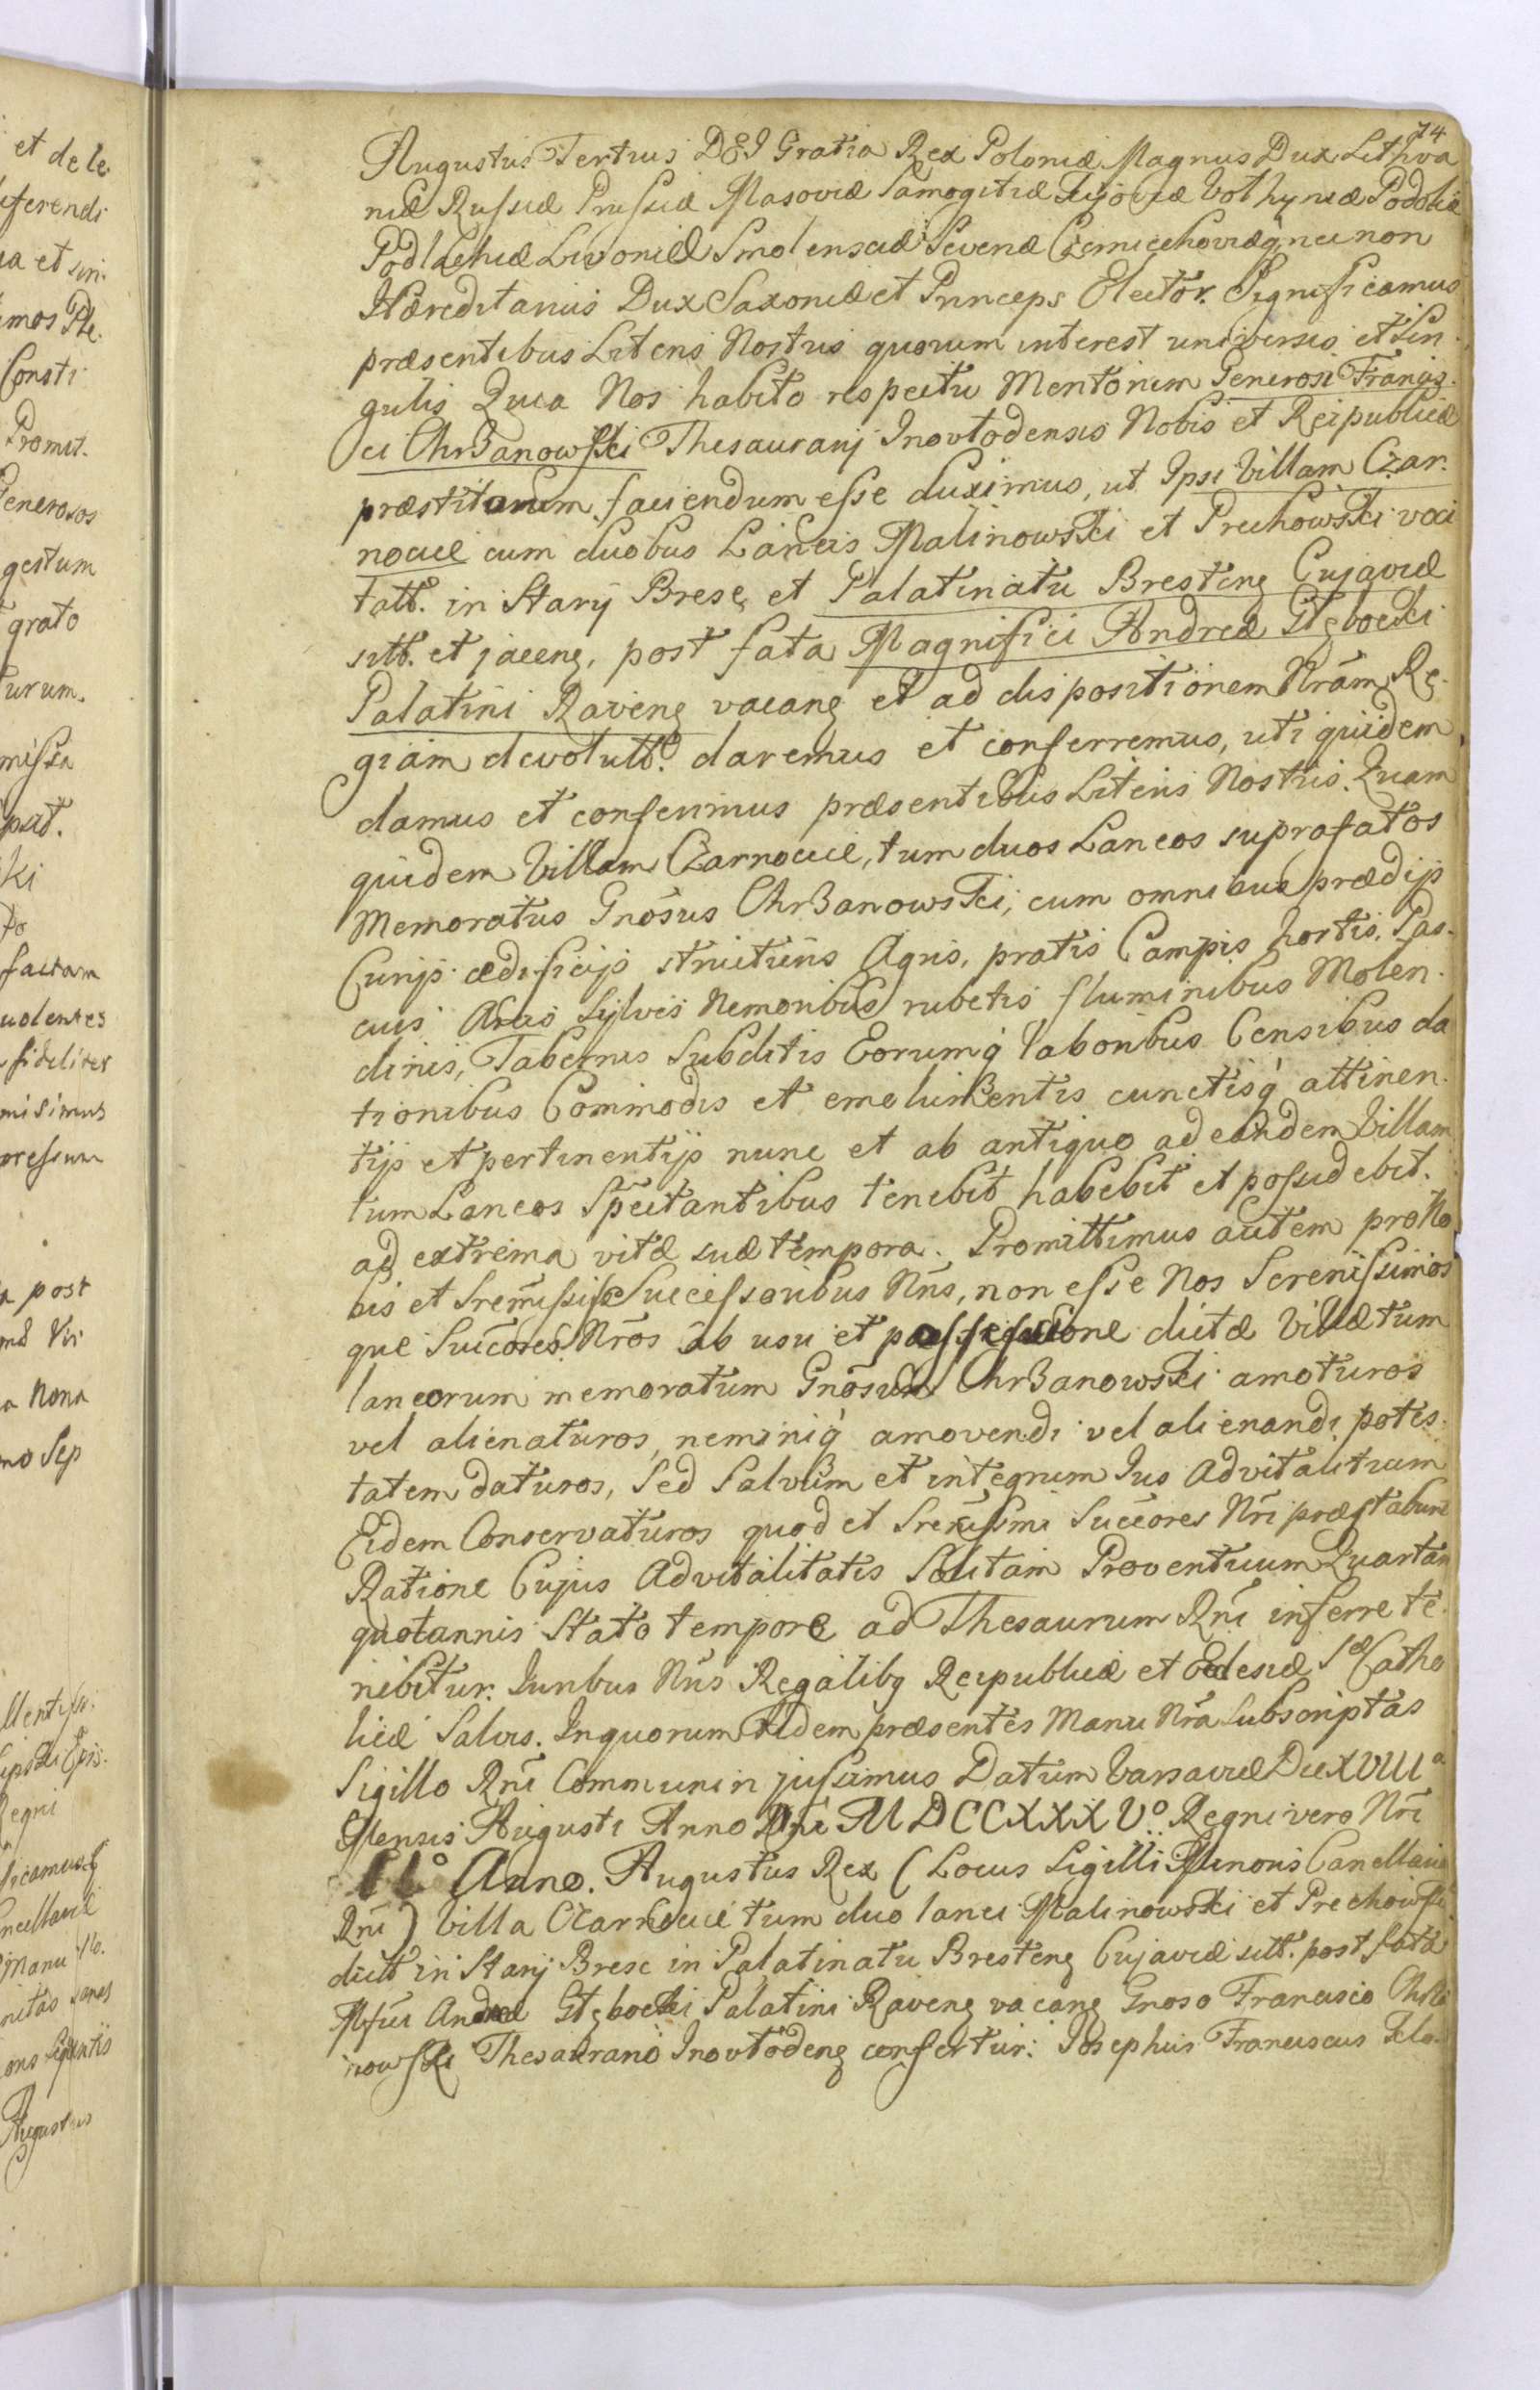 et dele
ferendi
ia et sin:
imos Ple.
Consti
Promit.
Generosos
gestum
grato
urum.
missa
put.
ki
Do
factam
uolentes
fideliter
misimus
pressum
a post
Vi
a Nona
mo Sep
Regni
Manu
Augustus
74
Augustus Tertius DEI Gratia Rex Poloniæ Magnus Dux Lithva
niæ Russiæ Prussiæ Masoviæ Samogitiæ Kijoviæ Volhyniæ Podoliæ
Podlachiæ Livoniæ Smolensciæ Severiæ Czerniechoviæq̀ necnon
Hæreditarius Dux Saxoniæ et Princeps Elector. Significamus
præsentibus Literis Nostris quorum interest universis et Sin-
gulis Quia Nos habito respectu Meritorum Generosi Francis-
ci Chrzanowski Thesaurarij Inovlodensis Nobis et Reipublicæ
præstitorum faciendum esse duximus, ut Ipsi Villam Czar-
nocice cum duobus Laneis Malinowski et Prechowski voci
tatt. in Starÿ Bresc, et Palatinatu Bresteng Cujaviæ
sitt. et jaceng, post fata Magnifici Andreæ Głębocki
Palatini Raveng vacang et ad dispositionem Nrãm Re-
giam devolutt. daremus et conferremus, uti quidem
damus et conferimus præsentibus Literis Nostris. Quam
quidem Villam Czarnocice, tum duos Laneos suprafatos
Memoratus Gnõsus Chrzanowski, cum omnibus prædijs
Curijs ædificijs structuris Agris, pratis Campis hortis, Pas-
cuis Areis Sylvis Nemoribus rubetis fluminibus Molen-
dinis, Tabernis Subditis Eorumq̀ laboribus Censibus da
tionibus Commodis et emolumentis cunctisq̀ attinen-
tijs et pertinentijs nunc et ab antiquo ad eandem Villam
tum Laneos Spectantibus tenebit habebit et possidebit.
ad extrema vitæ suæ tempora. Promittimus autem pro No
bis et Sremissis Successoribus Nris, non esse Nos Serenissimos
que Succores Nrõs ab usu et possessione dictæ Villæ tum
laneorum memoratum Gnõsum Chrzanowski amoturos
vel alienaturos, neminiq̀ amovendi vel alienandi potes-
tatem daturos, Sed Salvum et integrum Ius Advitalitium
Eidem Conservaturos quod et Srenissmi Succores Nri præstabunt
Ratione Cujus Advitalitatis Solitam Proventuum Quartam
quotannis Stato tempore ad Thesaurum Rni inferre te-
nebitur. Iuribus Nris Regalibq Reipublicæ et Eclesiæ Sæ Catho
licæ Salvis. In quorum fidem præsentes Manu Nrã Subscriptas
Sigillo Rni Communiri jussimus Datum Varsaviæ Die XVIIIa
Mensis Augusti Anno Dni MDCCXXXVo. Regni vero Nri
IIo Anno. Augustus Rex (Locus Sigilli Minoris Cancellariæ
Rni) Villa Czarnocice tum duo lanei Malinowski et Prechowski
dictt in Starÿ Bresc in Palatinatu Bresteng Cujaviæ sitt. post fata
Mfici Andreæ Głębocki Palatini Raveng vacang Gnoso Francisco Chrza
nowski Thesaurario Inovlodeng confertur: Josephus Franciscus